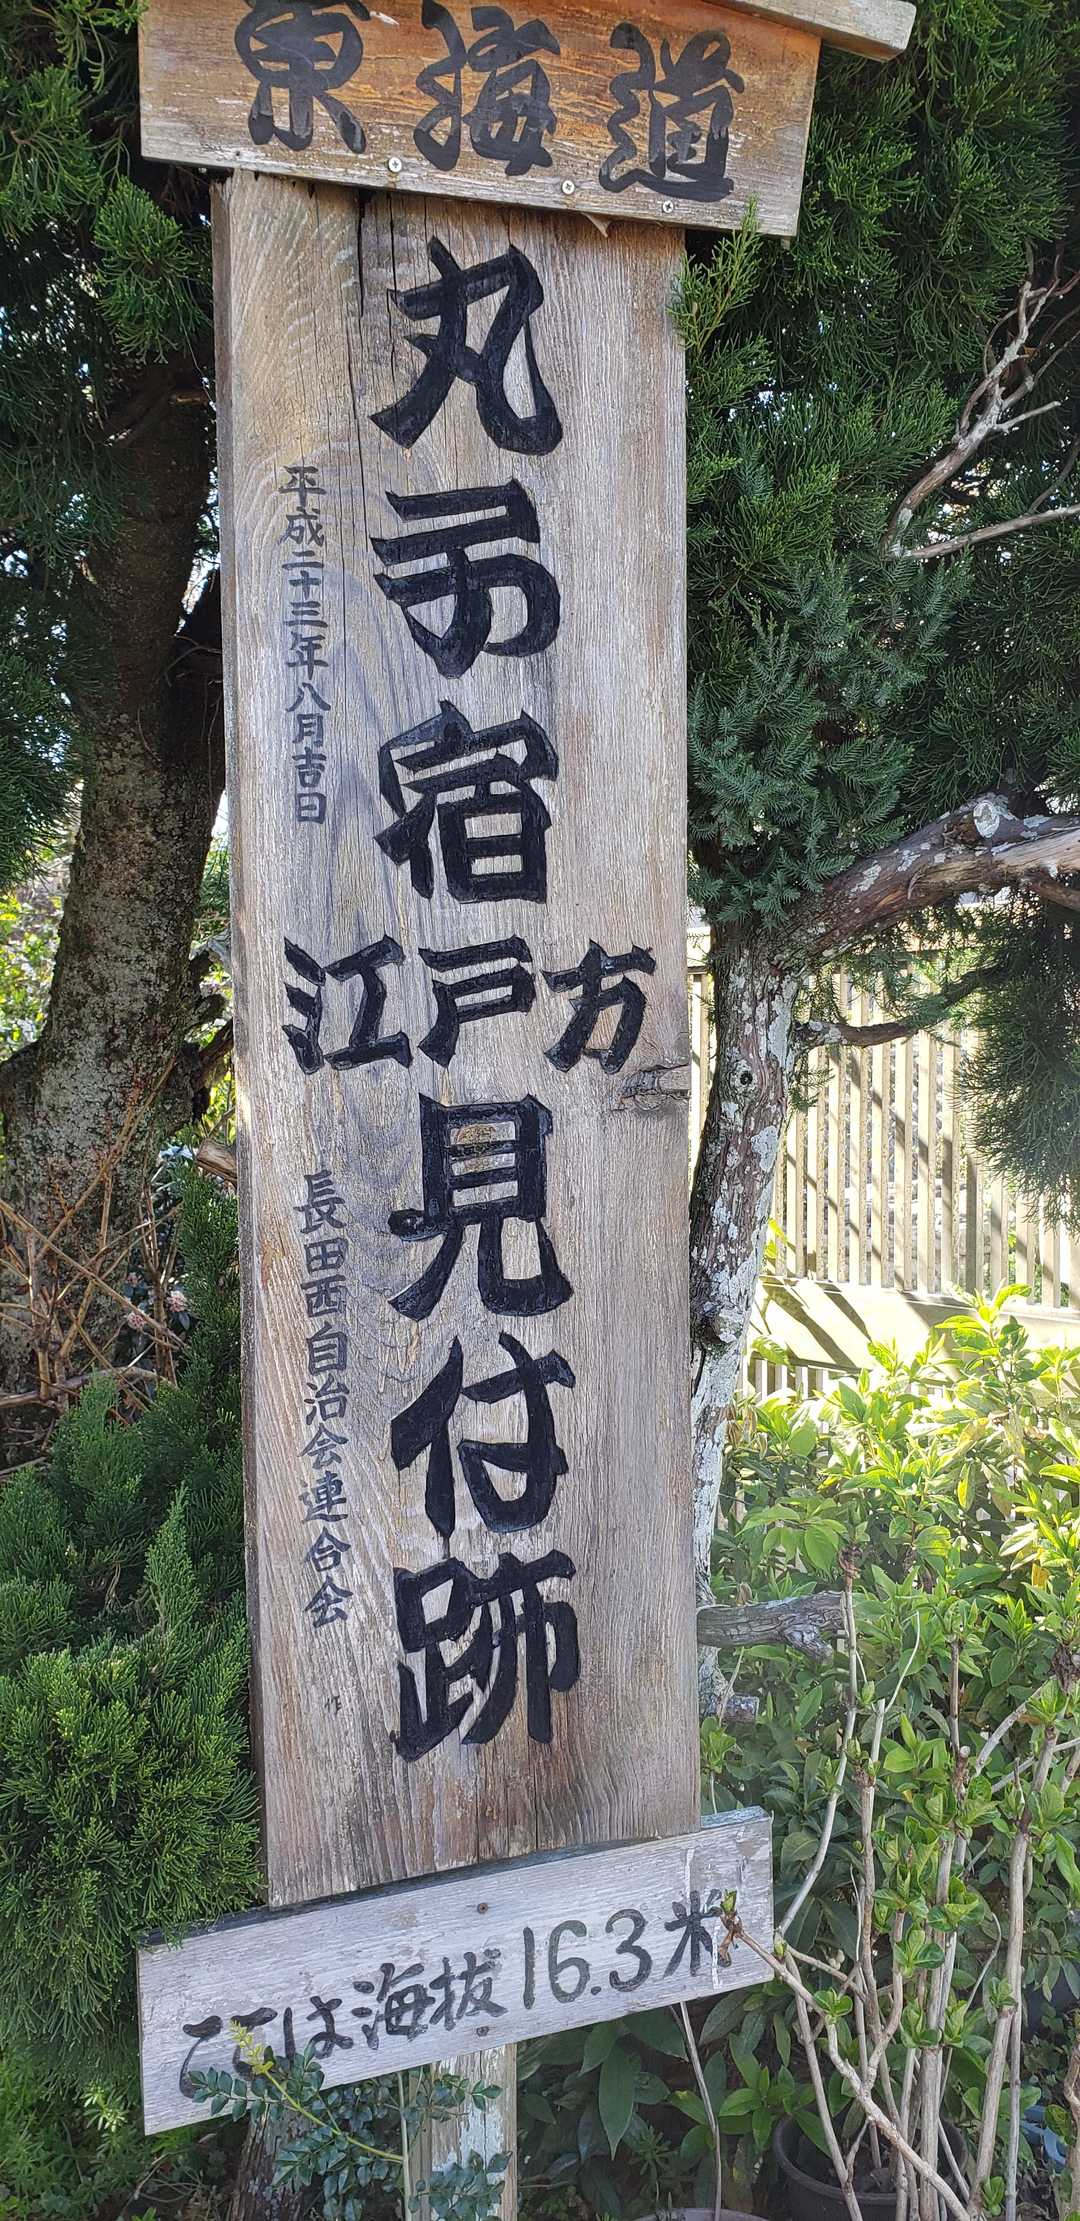 東海道
丸子宿
江戸方
見付跡
平成二十三年八月吉日
長田西自治会連合会 作
ここは海抜16.3米